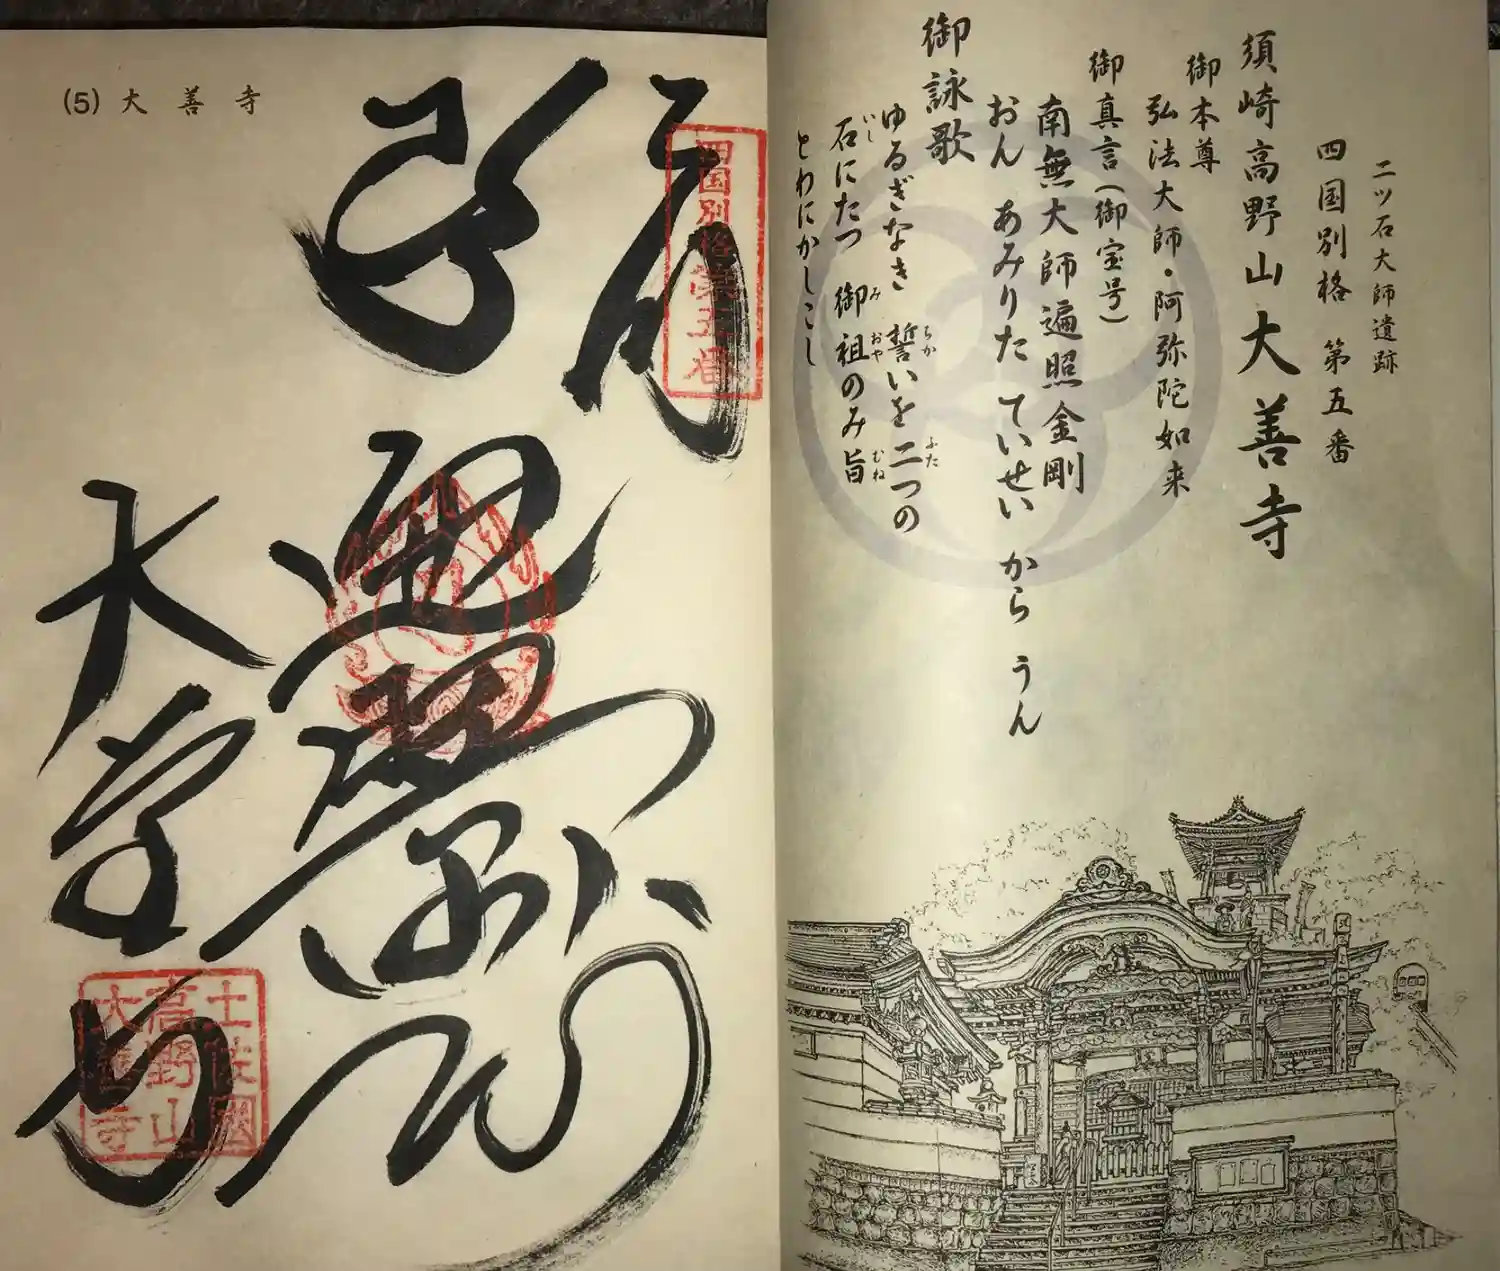 二ツ石大師遺跡
四国別格 第五番
須崎高野山大善寺
御本尊
弘法大師・阿弥陀如来
御真言(御宝号)
南無大師遍照金剛
おん あみりた ていせい から うん
御詠歌
ゆるぎなき 誓いを二つの
ちか
ふた
石にたつ 御祖のみ旨
いし
み
おや
むね
とわにかしこし
(5) 大善寺
四国別格第五番
大善寺
土佐國
高野山
大善寺